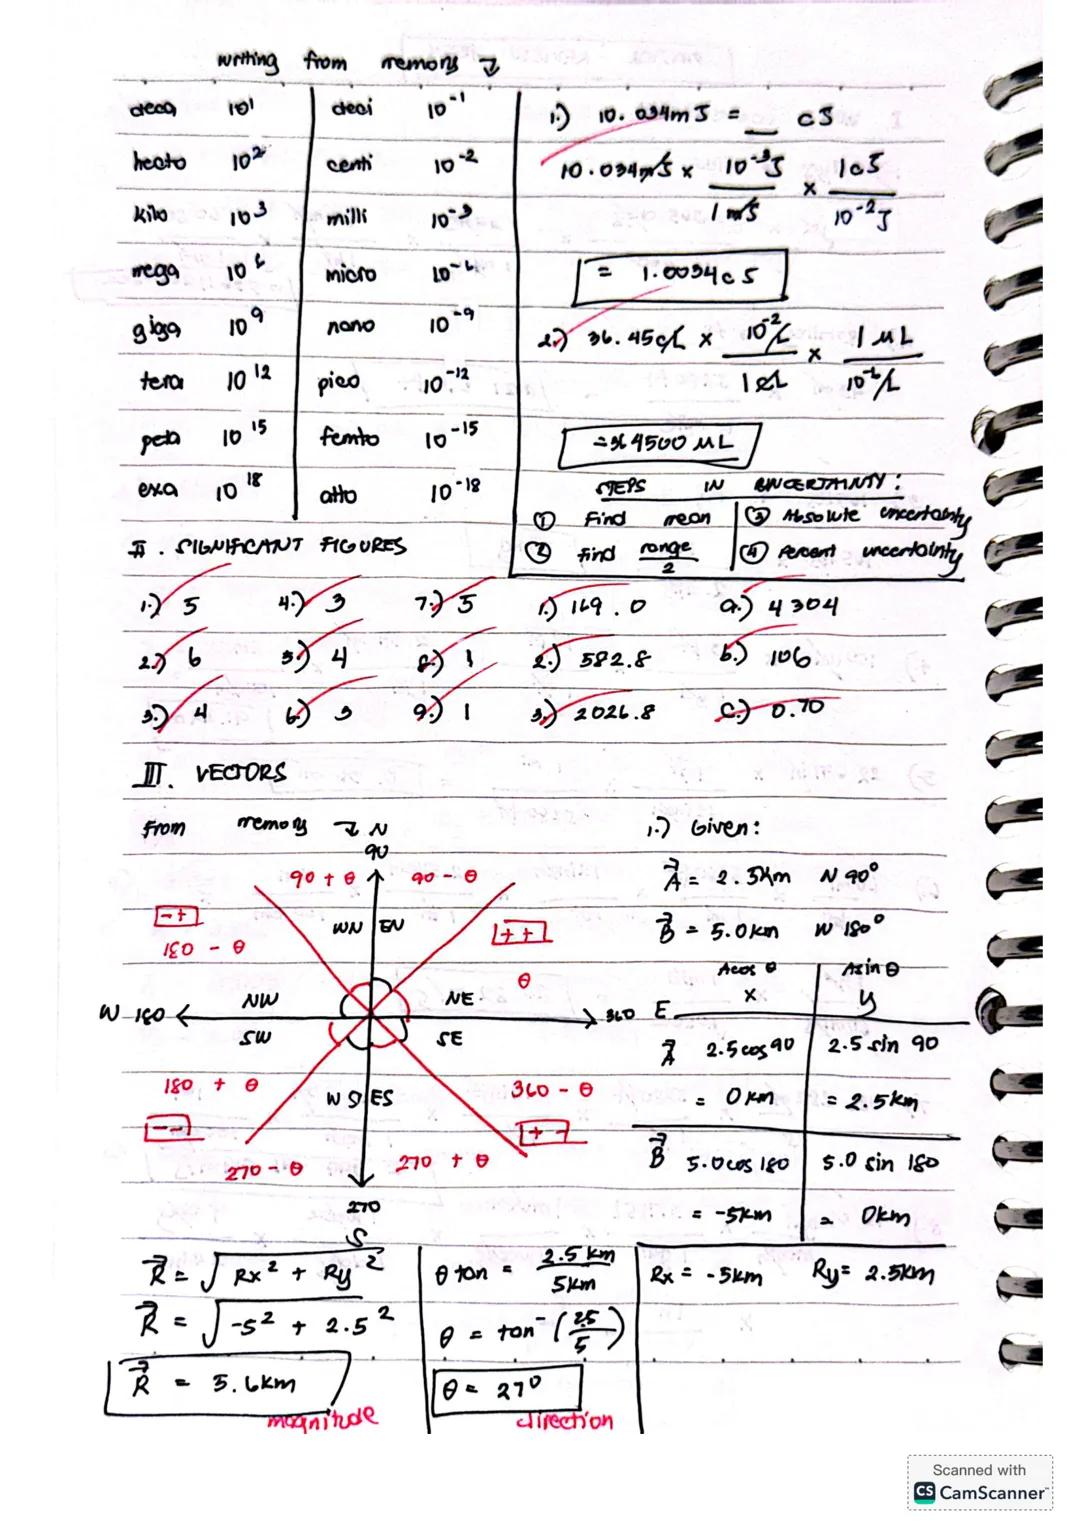 writing from memory ↴
deca 10¹ deci 10⁻¹
hecto 10² centi 10⁻²
kilo 10³ milli 10⁻³
mega 10⁶ micro 10⁻⁶
giga 10⁹ nano 10⁻⁹
tera 10¹² pico 10⁻¹²
peta 10¹⁵ femto 10⁻¹⁵
exa 10¹⁸ atto 10⁻¹⁸
1.) 10.034mJ = __ cJ
10.034mJ x 10⁻³J / 1mJ x 1cJ / 10⁻²J
= 1.0034cJ
2.) 36.45cL x 10⁻²L / 1cL x 1µL / 10⁻⁶L
=364500 µL
STEPS IN UNCERTAINTY:
① Find mean ③ Absolute uncertainty
② Find range/2 ④ Percent uncertainty
II. SIGNIFICANT FIGURES
1.) 5 4.) 3 7.) 5 1.) 169.0 a.) 4304
2.) 6 5.) 4 8.) 1 2.) 582.8 b.) 106
3.) 4 6.) 3 9.) 1 3.) 2026.8 c.) 0.70
III. VECTORS
From memory ↴ N
90
90 + θ 90 - θ
-+ WN EN ++
180 - θ θ
NW NE
W 180 360 E
SW SE
180 + θ 360 - θ
WS ES
-- +-
270 - θ 270 + θ
270
S
1.) Given:
A = 2.5km N 90°
B = 5.0km W 180°
Acos θ Asin θ
x y
A 2.5cos90 2.5 sin 90
= 0km = 2.5km
B 5.0cos 180 5.0 sin 180
= -5km = 0km
Rx = -5km Ry = 2.5km
R = √Rx² + Ry²
R = √-5² + 2.5²
R = 5.6km
magnitude
θ tan = 2.5 km / 5km
θ = tan⁻ (2.5/5)
θ = 27°
direction
Scanned with
CS CamScanner